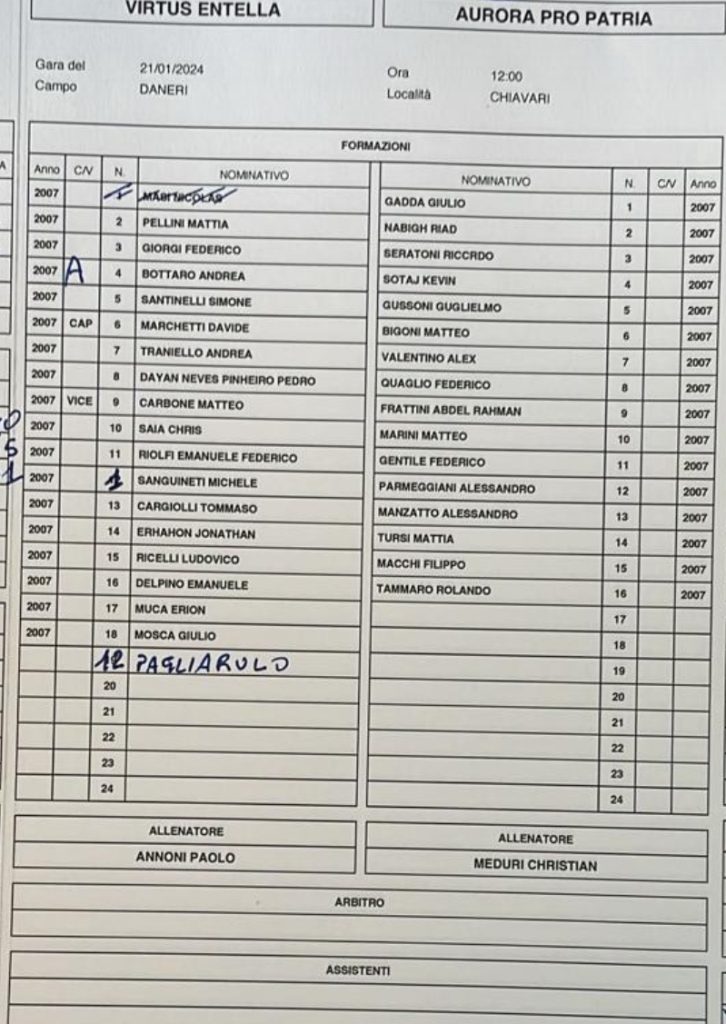 VIRTUS ENTELLA
AURORA PRO PATRIA
Gara del 21/01/2024
Campo DANERI
Ora 12:00
Località CHIAVARI
FORMAZIONI
Anno C/V N. NOMINATIVO
2007
2007 2 PELLINI MATTIA
2007 3 GIORGI FEDERICO
2007 A 4 BOTTARO ANDREA
2007 5 SANTINELLI SIMONE
2007 CAP 6 MARCHETTI DAVIDE
2007 7 TRANIELLO ANDREA
2007 8 DAYAN NEVES PINHEIRO PEDRO
2007 VICE 9 CARBONE MATTEO
2007 10 SAIA CHRIS
2007 11 RIOLFI EMANUELE FEDERICO
2007 1 SANGUINETI MICHELE
2007 13 CARGIOLLI TOMMASO
2007 14 ERHAHON JONATHAN
2007 15 RICELLI LUDOVICO
2007 16 DELPINO EMANUELE
2007 17 MUCA ERION
2007 18 MOSCA GIULIO
12 PAGLIARULO
20
21
22
23
24
NOMINATIVO N. C/V Anno
GADDA GIULIO 1 2007
NABIGH RIAD 2 2007
SERATONI RICCRDO 3 2007
SOTAJ KEVIN 4 2007
GUSSONI GUGLIELMO 5 2007
BIGONI MATTEO 6 2007
VALENTINO ALEX 7 2007
QUAGLIO FEDERICO 8 2007
FRATTINI ABDEL RAHMAN 9 2007
MARINI MATTEO 10 2007
GENTILE FEDERICO 11 2007
PARMEGGIANI ALESSANDRO 12 2007
MANZATTO ALESSANDRO 13 2007
TURSI MATTIA 14 2007
MACCHI FILIPPO 15 2007
TAMMARO ROLANDO 16 2007
17
18
19
20
21
22
23
24
ALLENATORE
ANNONI PAOLO
ALLENATORE
MEDURI CHRISTIAN
ARBITRO
ASSISTENTI